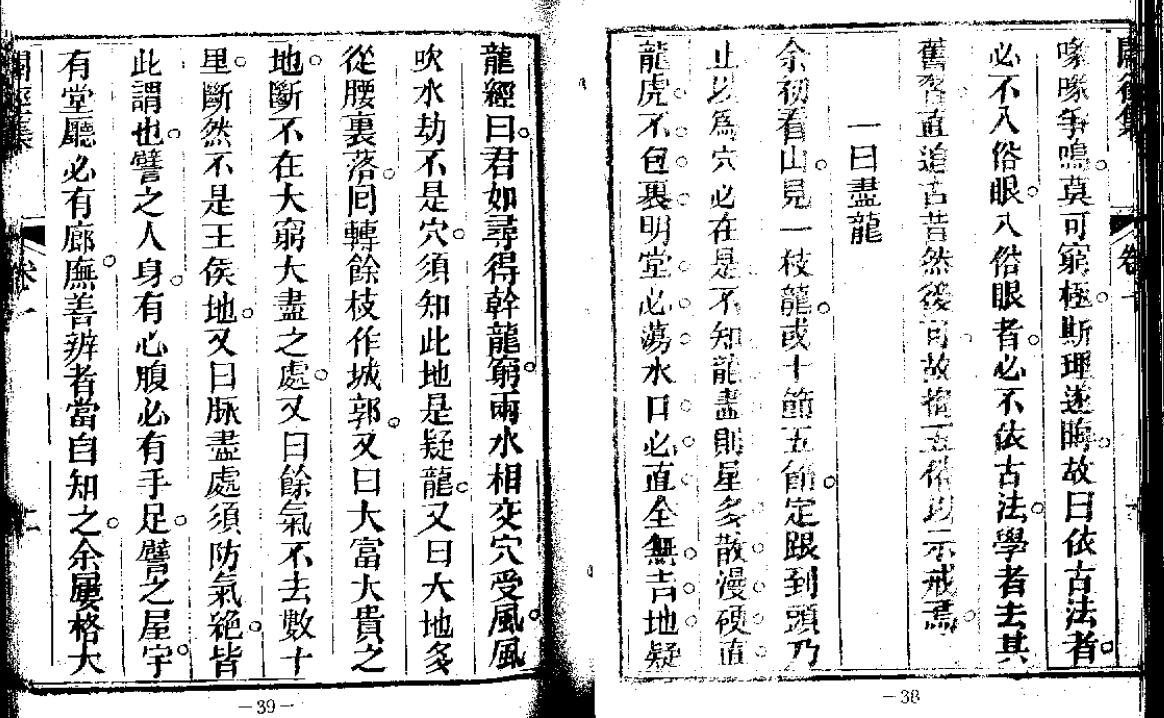 喙喙争鳴莫可窮極斯理遂晦故曰依古法者
必不入俗眼入俗眼者必不依古法學者去其
舊直追古昔然後可故五俗以示戒焉
一曰盡龍
余初看山見一枝龍或十節五節定跟到頭乃
止以為穴必在是不知龍盡則星多散漫硬直
龍虎不包裹明堂必蕩水口必直全無吉地疑
-38
龍經曰君如尋得幹龍窮兩水相交穴受風風
吹水劫不是穴須知此地是疑龍又曰大地多
從腰裏落囘轉餘枝作城郭又曰大富大貴之
地斷不在大窮大盡之處又曰餘氣不去數十
里斷然不是王侯地又曰脉盡處須防氣絕皆
此謂也譬之人身有心腹必有手足譬之屋宇
有堂廳必有廊廡善辨者當自知之余屢格大
卷一
-39-